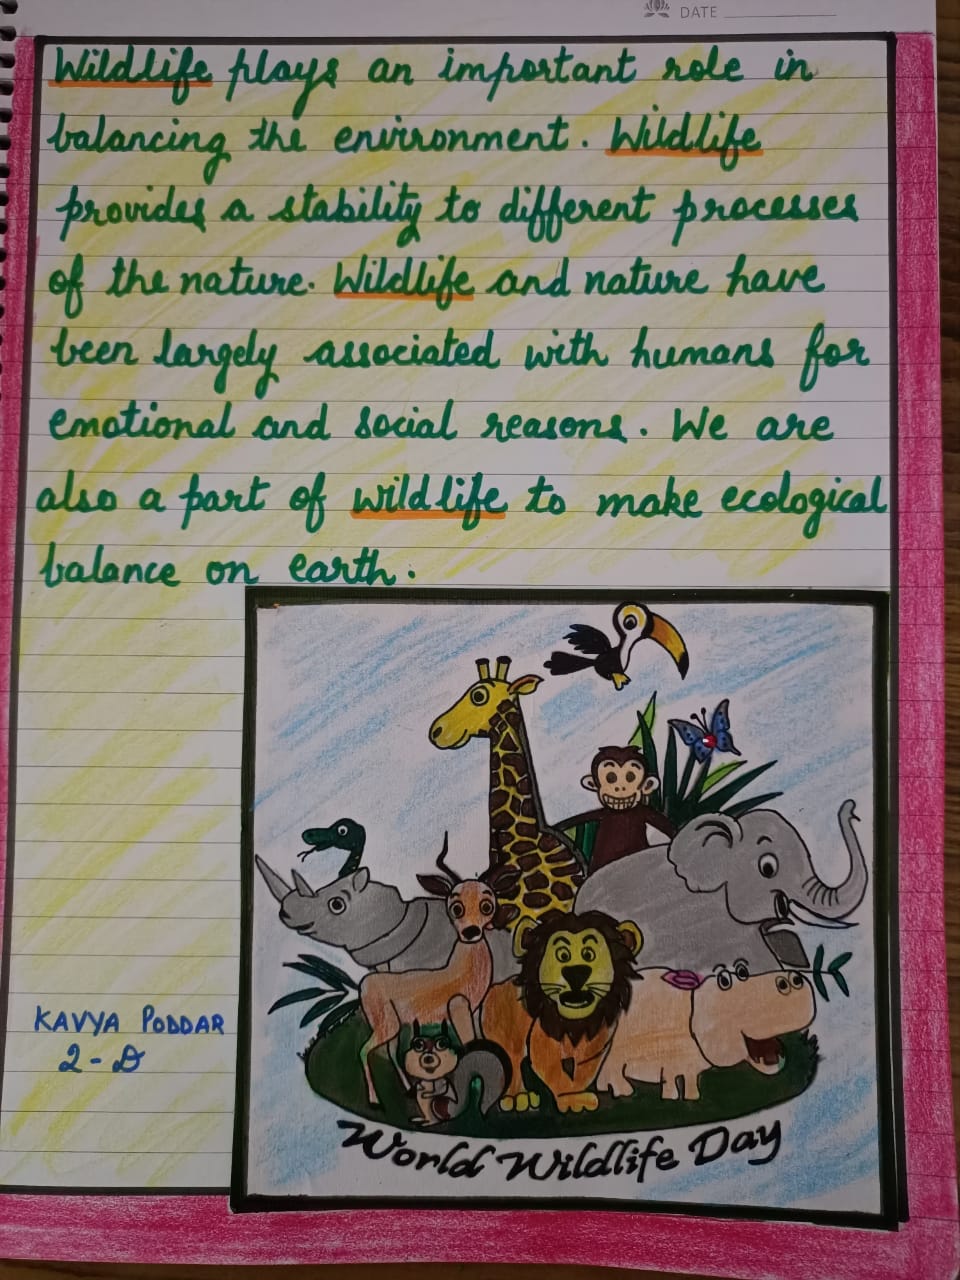 DATE
Wildlife plays an important role in
balancing the environment. Wildlife
provides a stability to different processes
of the nature. Wildlife and nature have
been largely associated with humans for
emotional and social reasons. We are
also a part of wildlife to make ecological
balance on earth.
KAVYA PODDAR
2-D
World Wildlife Day